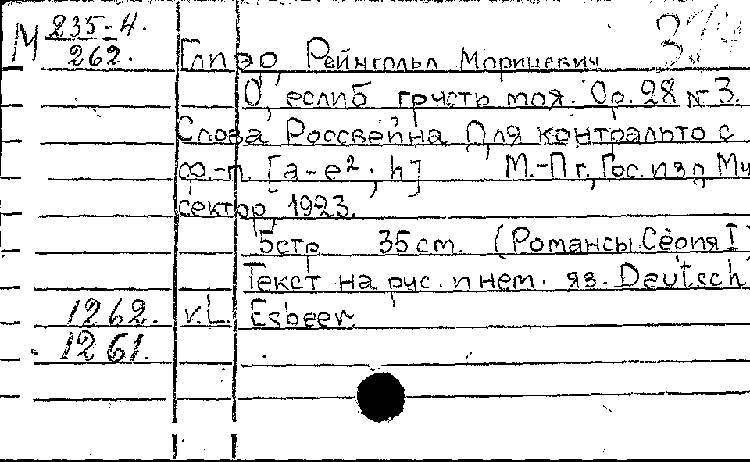 М 235-4. 374
262. Глиэр, Рейнгольд Морицевич
О, если б грусть моя. Ор. 28 № 3.
Слова Россвейна Для контральто с
ф.-п. [a-e²; h] М.-Пг, Гос. изд, Му
сектор, 1923.
5 стр 35 cm. (Романсы. Серия I
Текст на рус. и нем. яз. Deutsch
1262. v. L. Esbeer
1261.